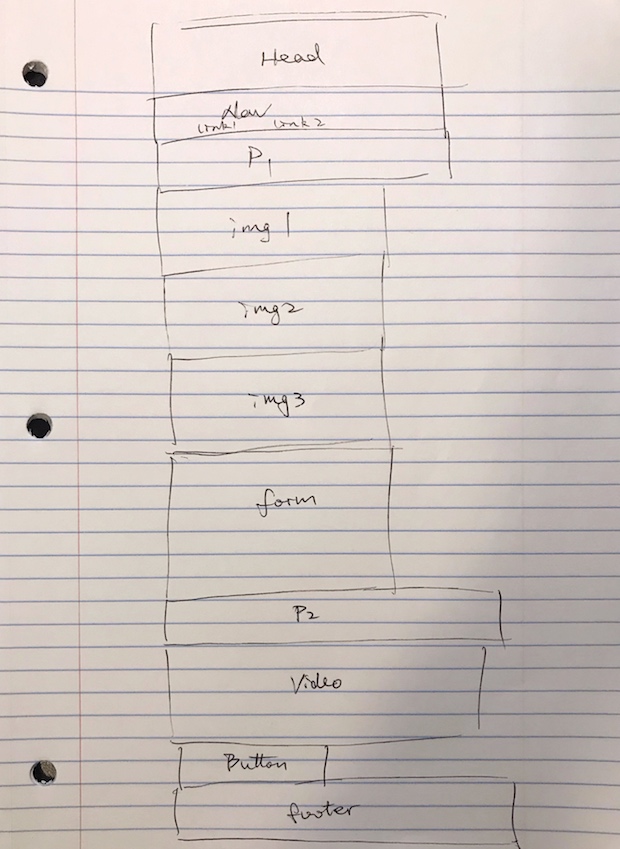 Head
Nav
Link1 Link2
P1
img1
img2
img3
form
P2
Video
Button
footer